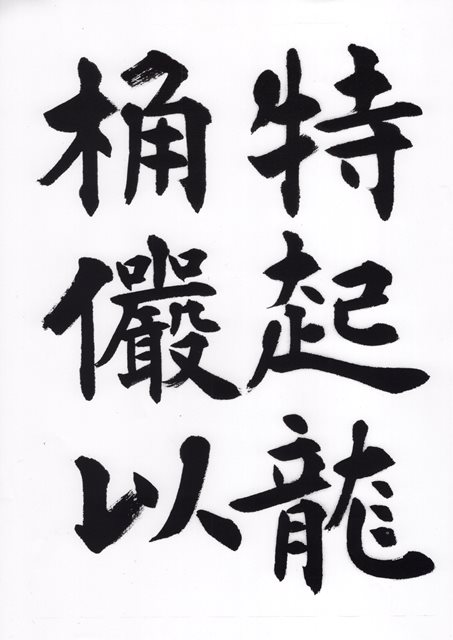 特起龍
桶儼以